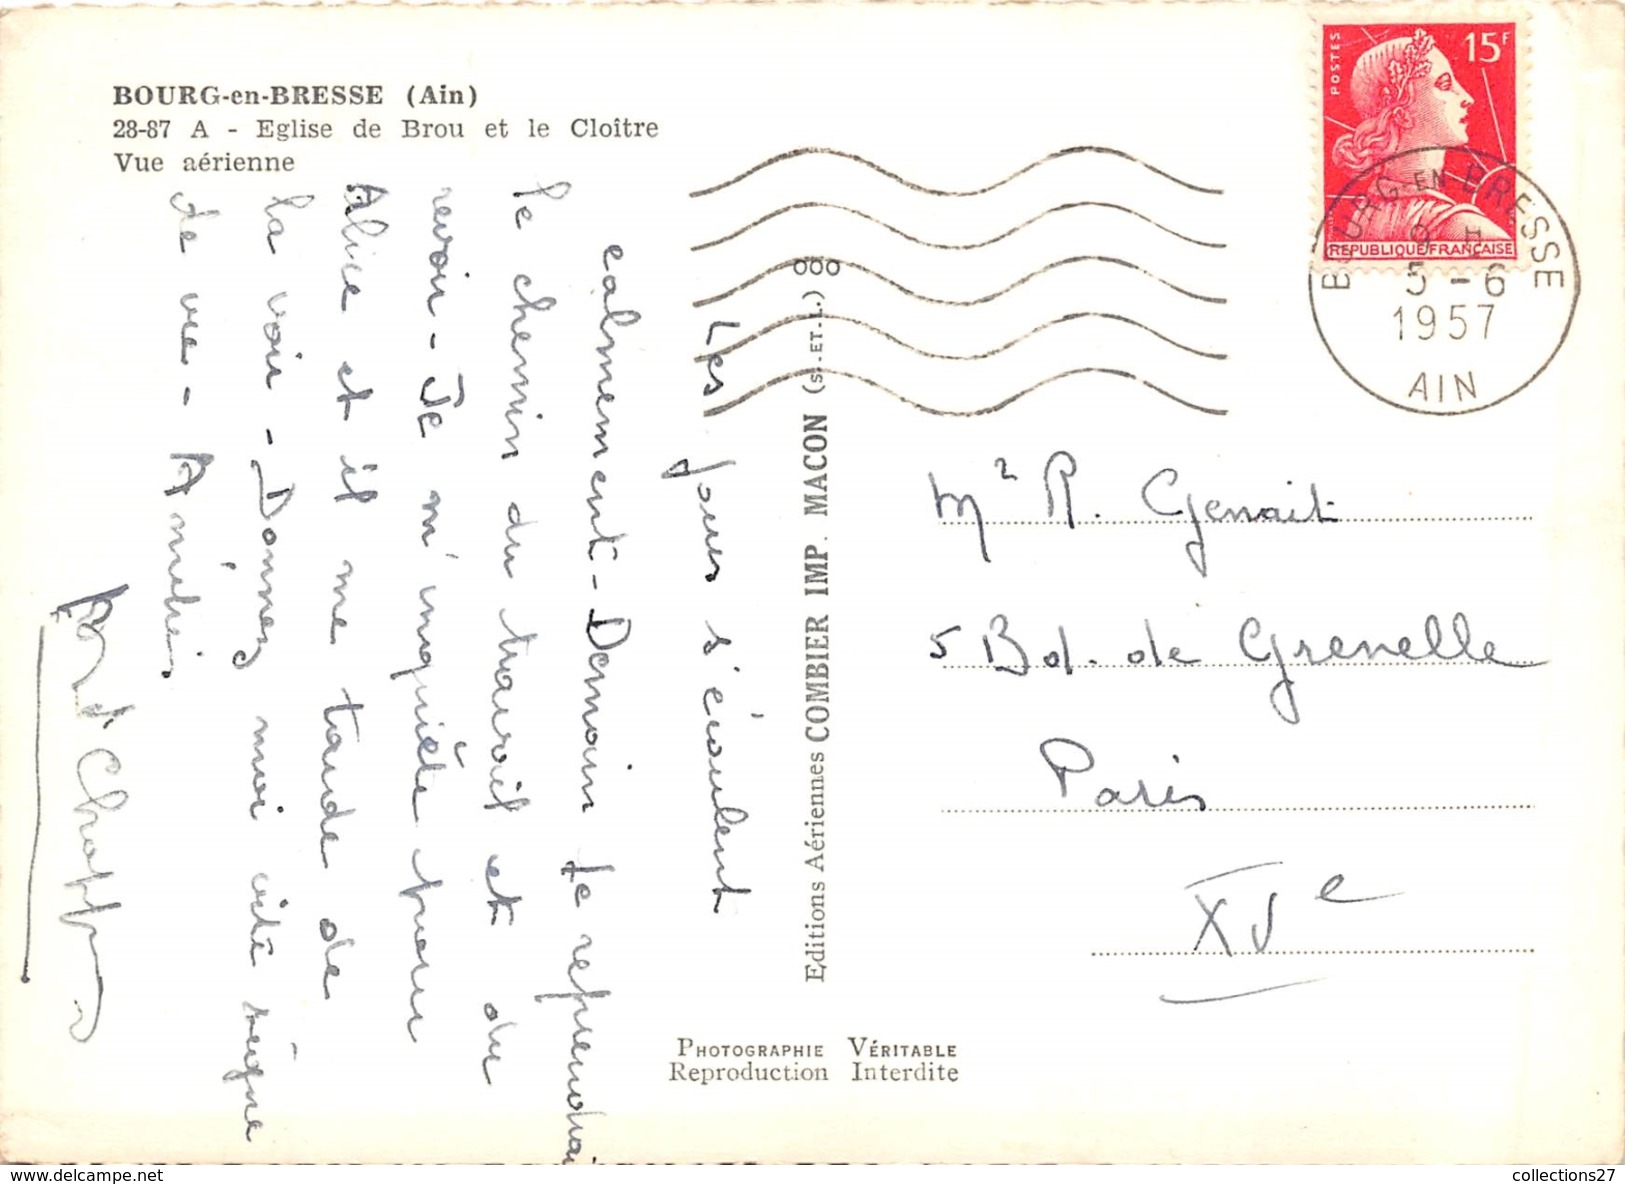 BOURG-en-BRESSE (Ain)
28-87 A - Eglise de Brou et le Cloître
Vue aérienne
Les jours s'écoulent
calmement - Demain je reprendrai
le chemin du travail et du
revoir - Je m'inquiète pour
Alice et il me tarde de
la voir - Donnez moi vite signe
de vie - Amitiés
Editions Aériennes COMBIER IMP. MACON (S.-ET-L.) 000
PHOTOGRAPHIE VÉRITABLE
Reproduction Interdite
POSTES
15F
REPUBLIQUE FRANÇAISE
BOURG-EN-BRESSE
9 H
5 - 6
1957
AIN
Mr R. Genait
5 Bd. de Grenelle
Paris
XVe
collections27